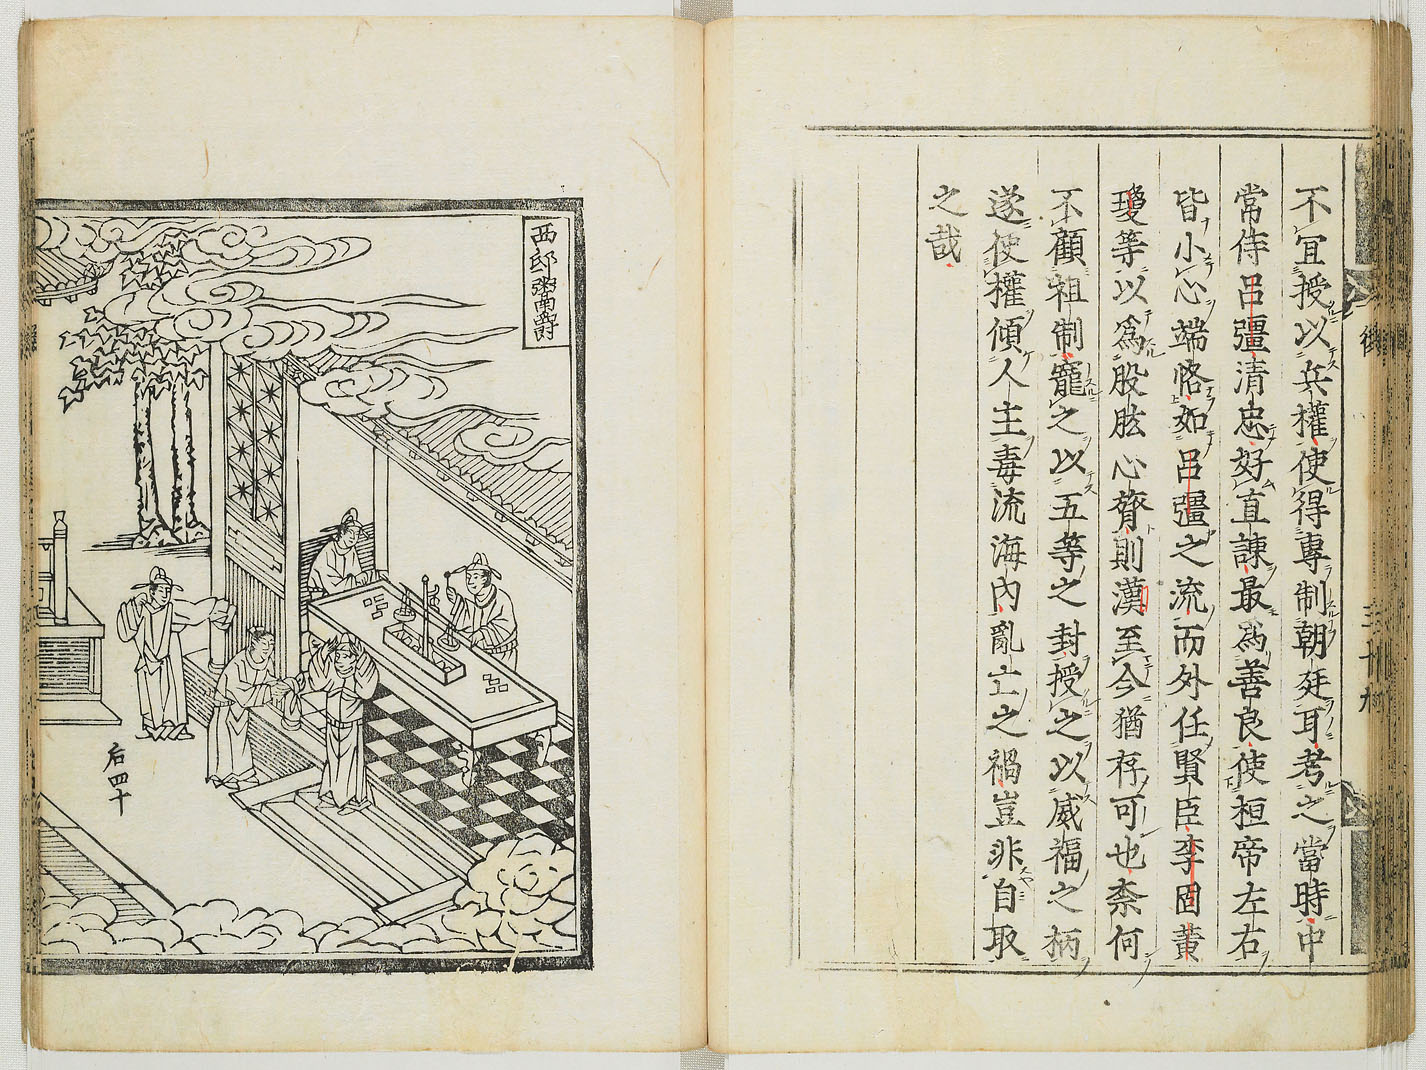 不宜授以兵權使得專制朝廷耳考之當時中
常侍呂彊清忠好直諫最為善良使桓帝左右
皆小心端恪如呂彊之流而外任賢臣李固黃
瓊等以爲股肱心膂則漢至今猶存可也柰何
不顧祖制寵之以五等之封授之以威福之柄
遂使權傾人主毒流海內亂亡之禍豈非自取
之哉
三十九
西邸鬻爵
后四十